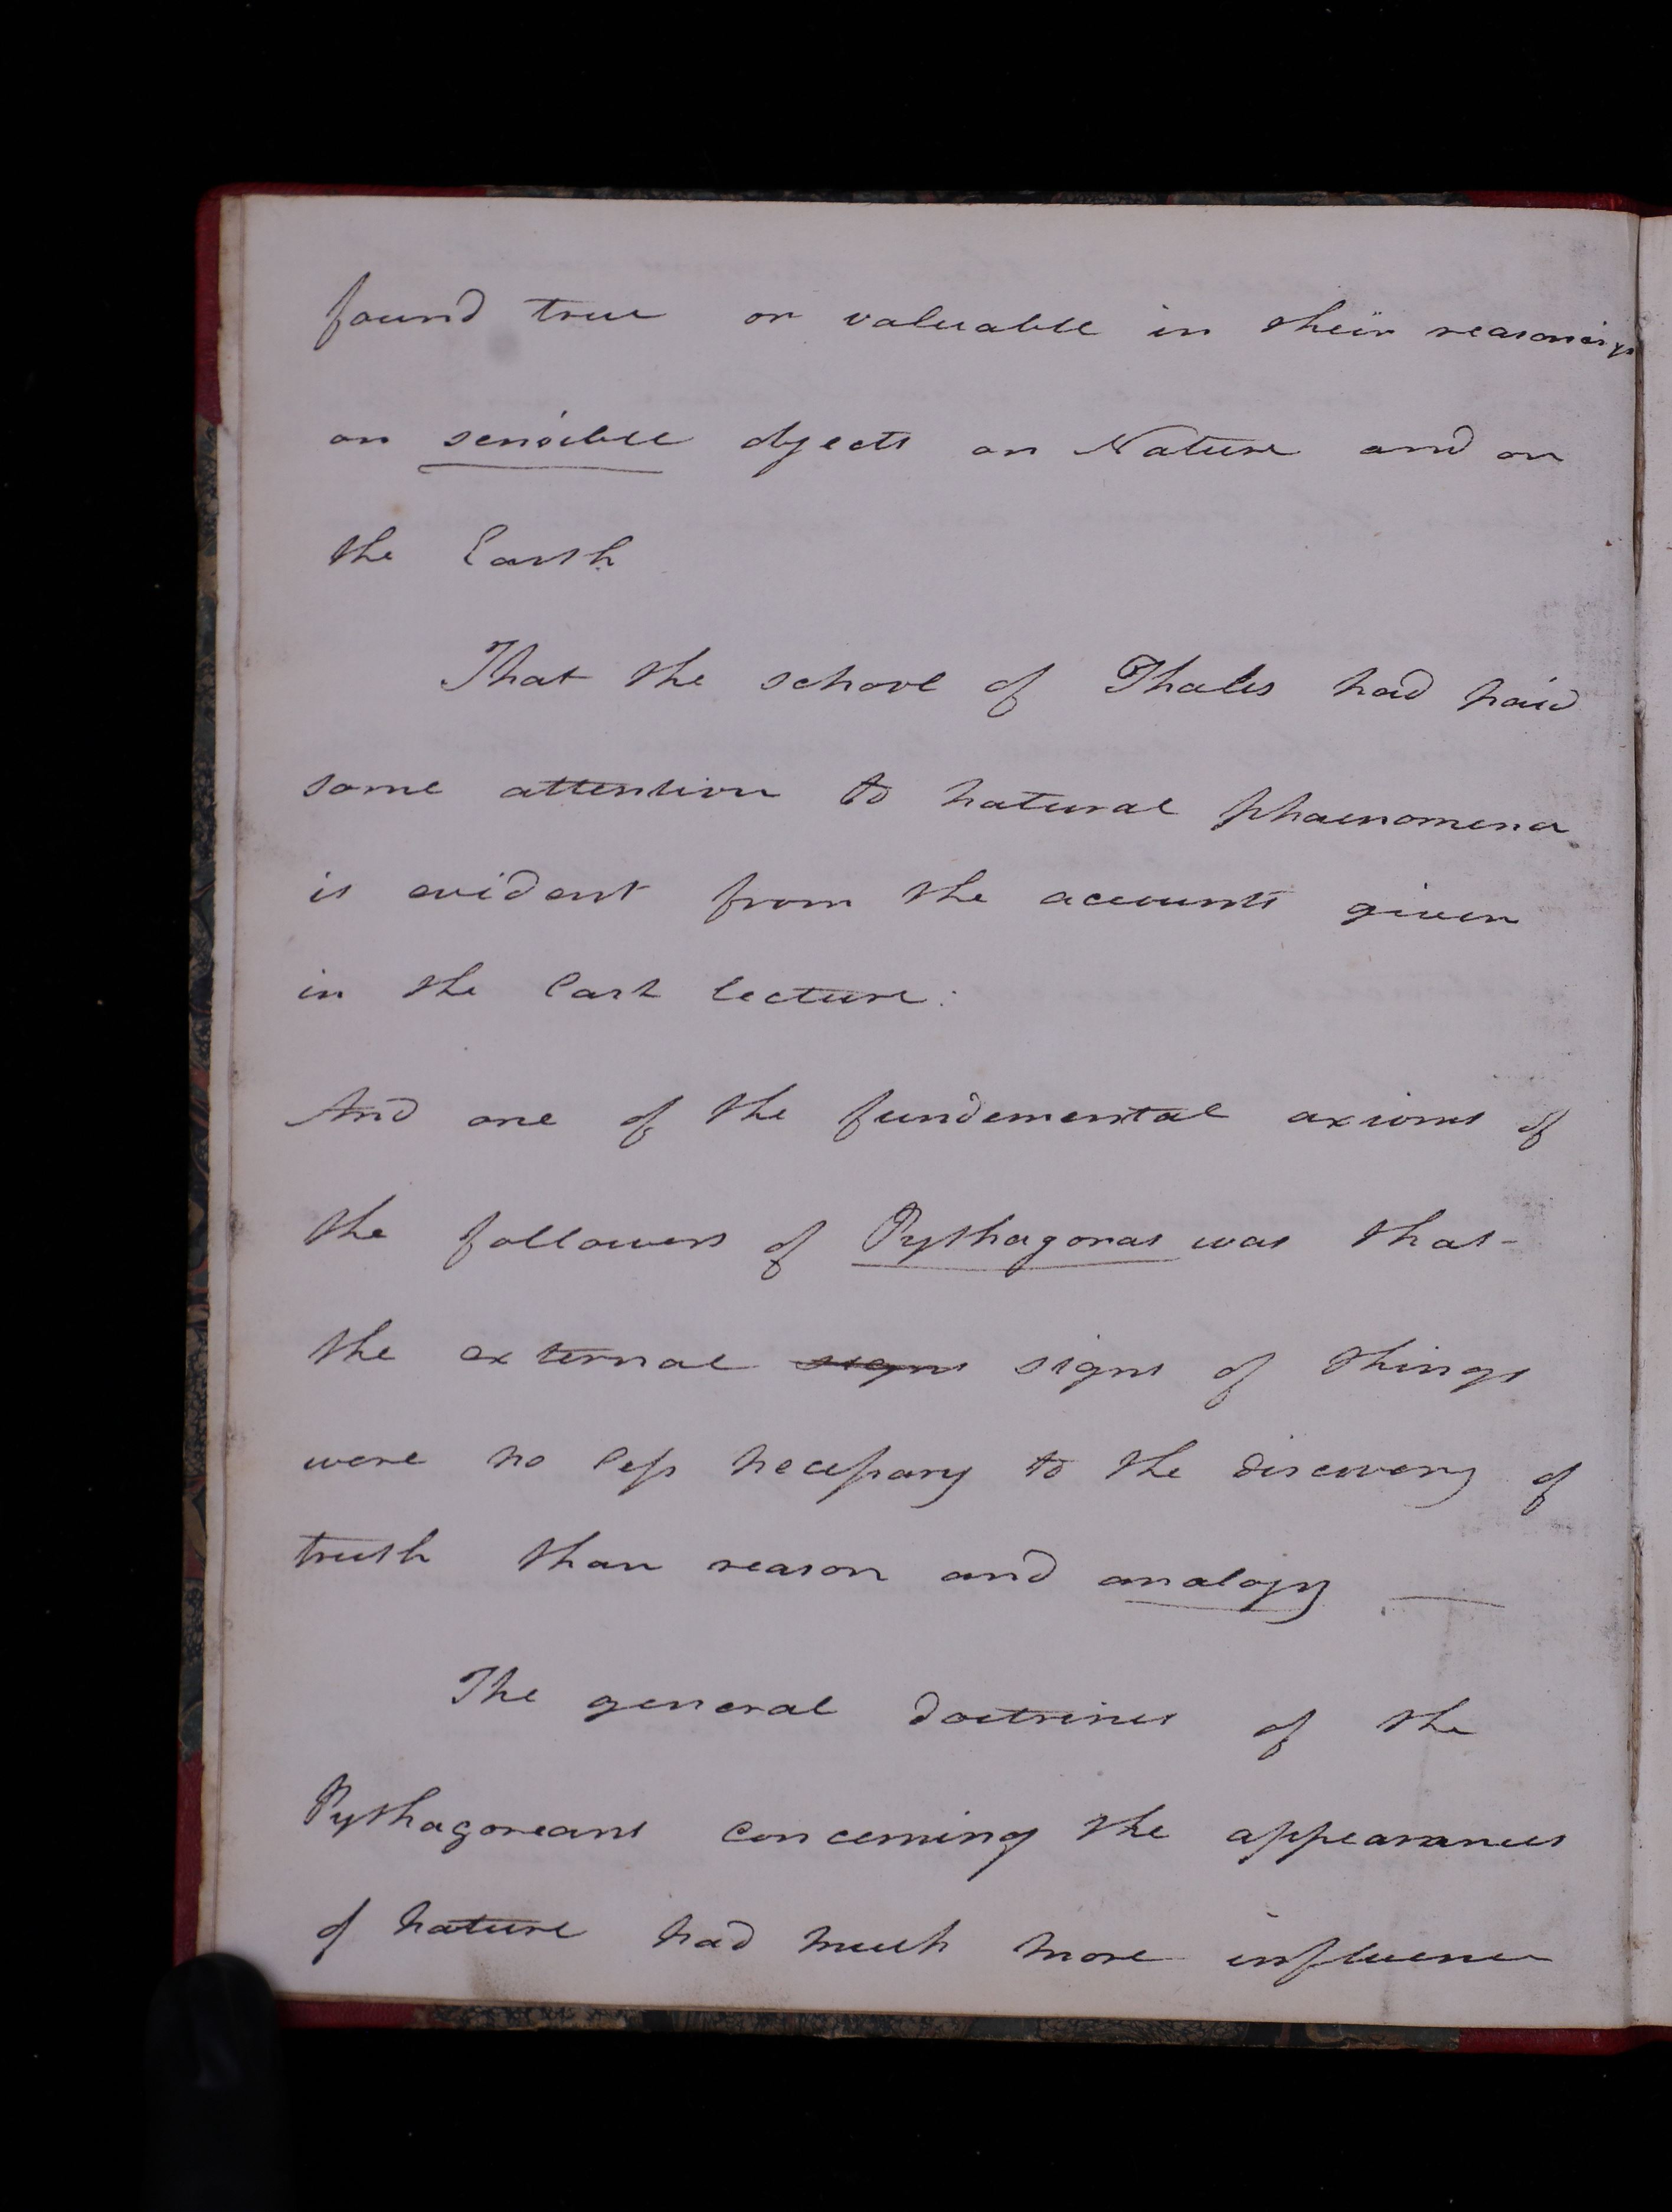 found true or valuable in their reasonings
on sensible objects on Nature and on
the Earth
That the school of Thales had paid
some attention to natural phaenomena
is evident from the accounts given
in the last lecture:
And one of the fundemental axioms of
the followers of Pythagoras was that-
the external signs signs of things
were no less necessary to the discovery of
truth than reason and analogy —
The general doctrines of the
Pythagoreans concerning the appearances
of nature had much more influence